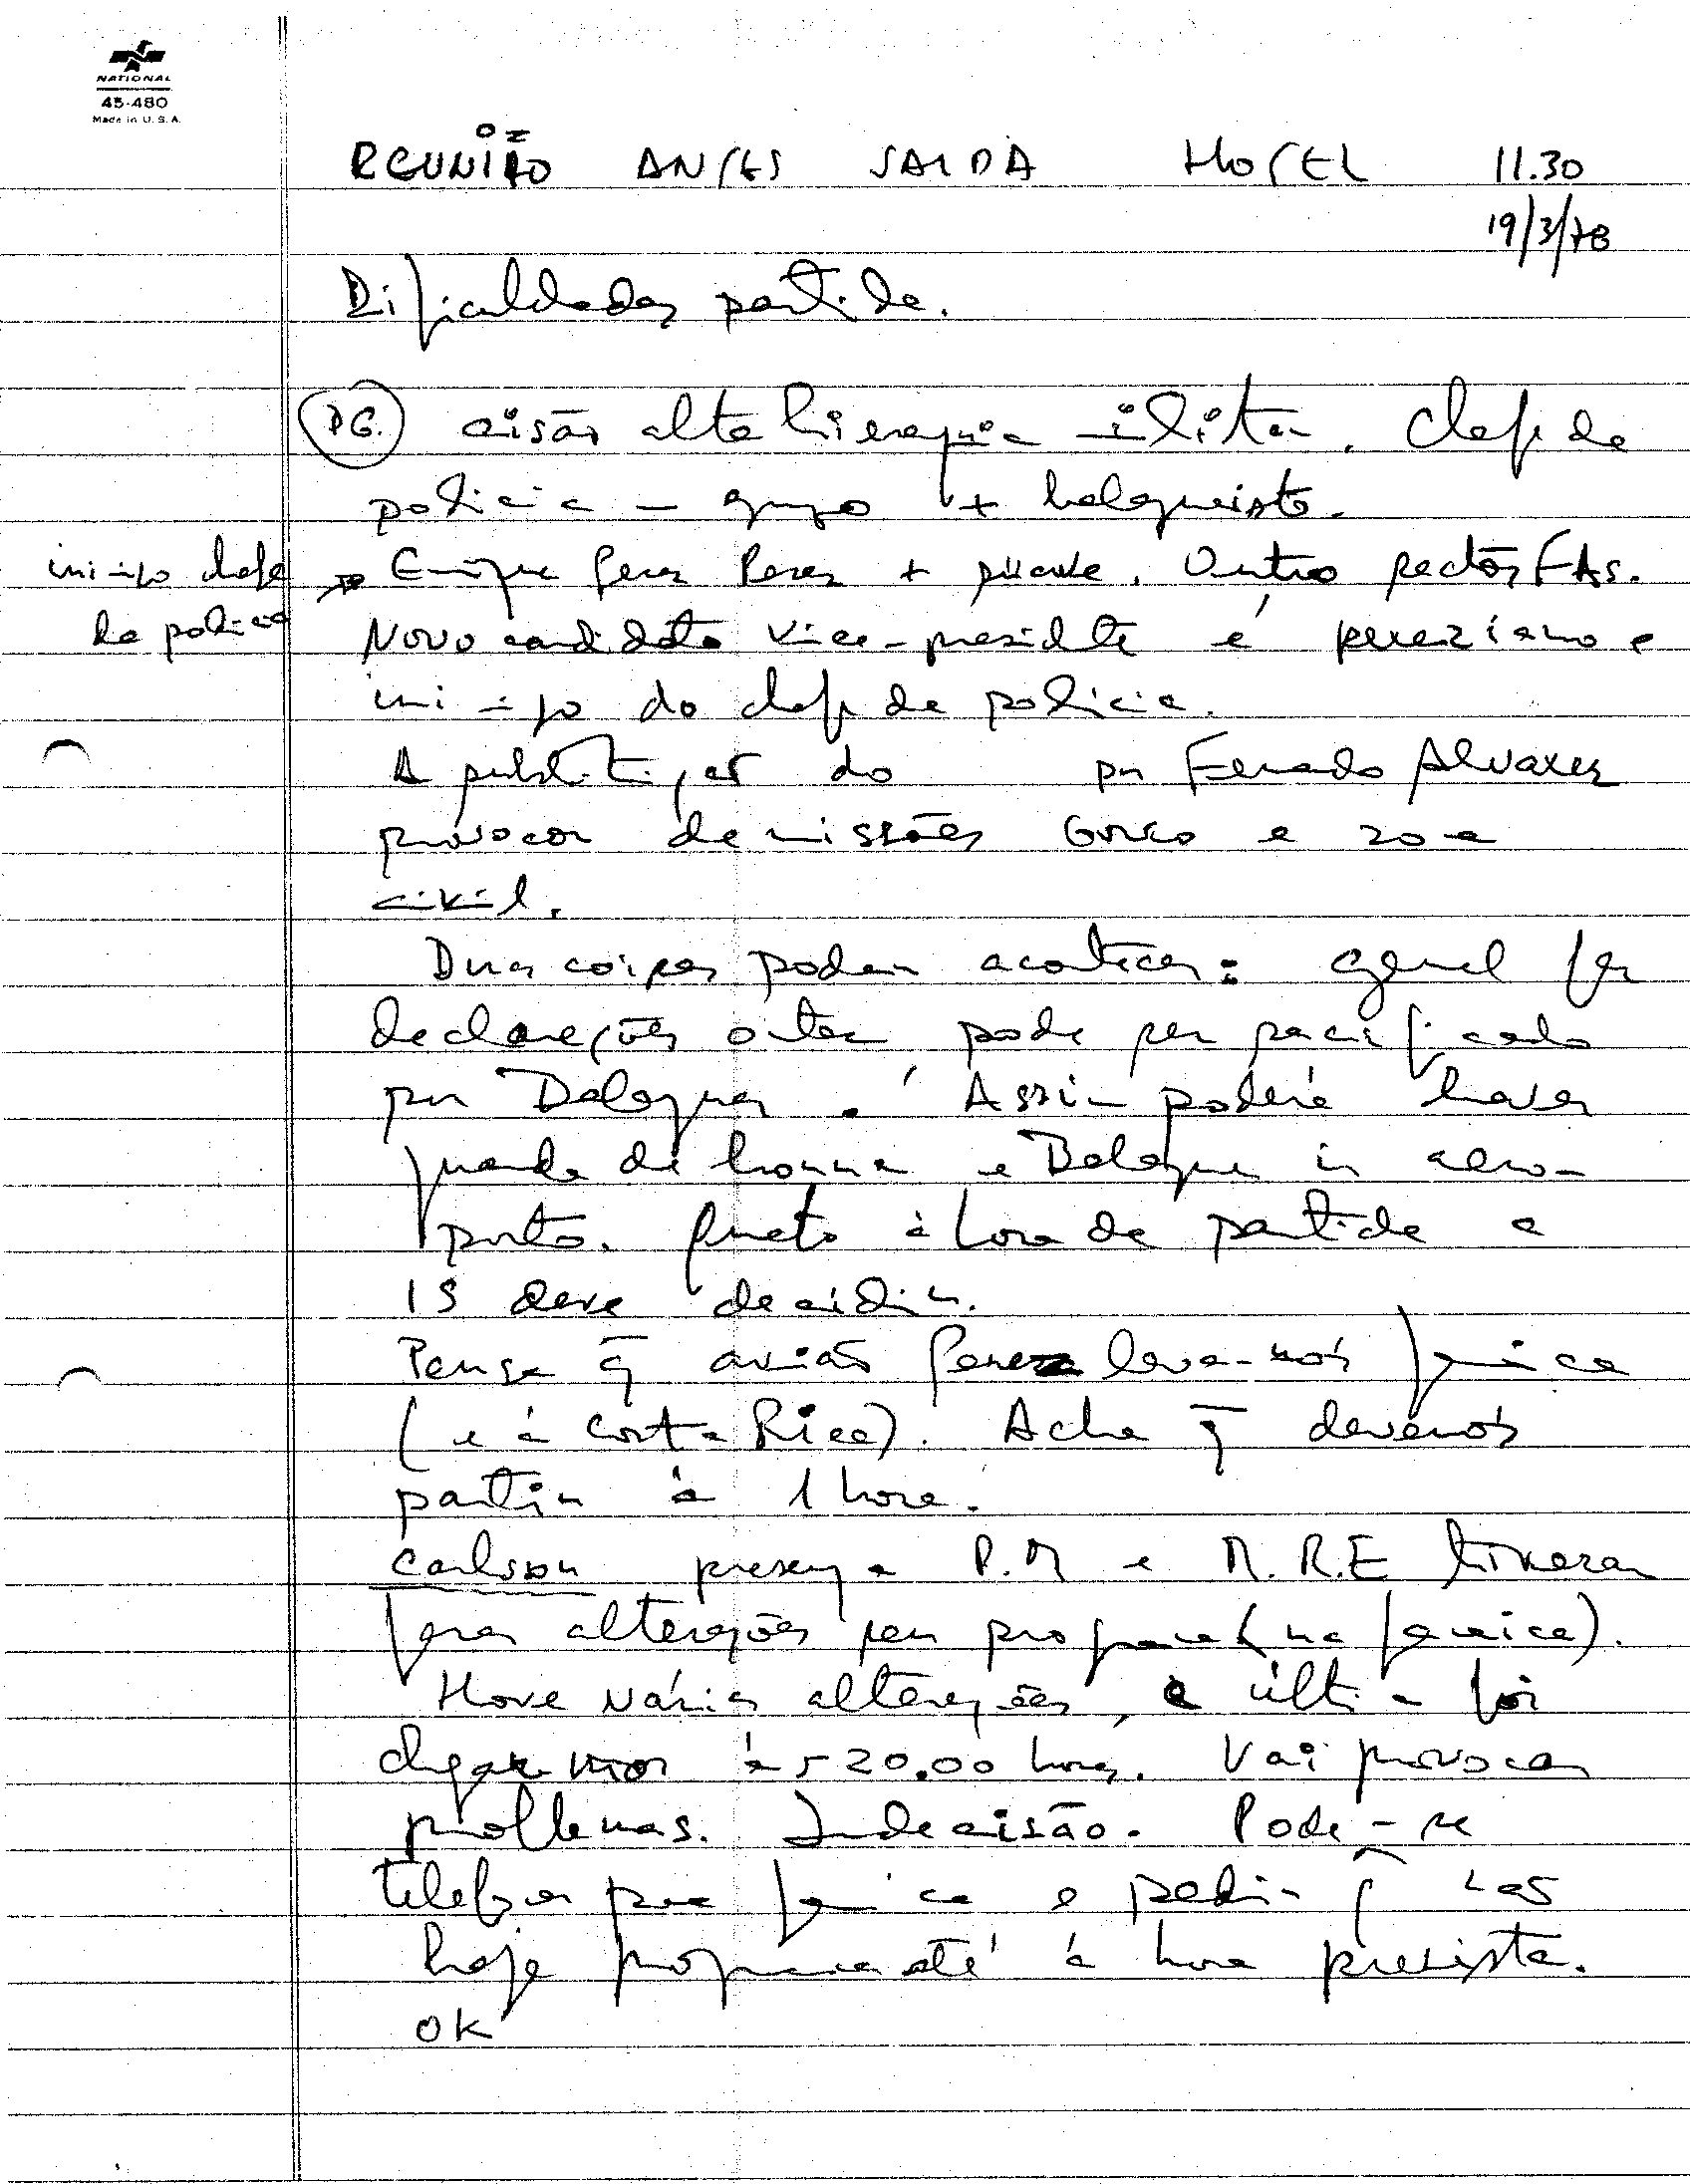 NATIONAL
45-480
Made in U.S.A.
REUNIÃO ANTES SAIDA HOTEL 11.30
19/3/78
Dificuldades partida.
P.G. cisão alta hierarquia militar. Chefe da
policia – grupo + balaguerista.
inimigo chefe
da policia
Enrique Perez Perez + Outro sector FAs.
Novo candidato vice-presidente é perezista e
inimigo do chefe de policia.
A substituição do por Fernando Alvarez
provocou demissões e
civil.
Duas coisas podem acontecer: general fez
declarações ontem, pode ser pacificado
por Balaguer. Assim poderá haver
guarda de honra e Balaguer in aero-
porto. Quanto à hora da partida a
IS deve decidir.
Pensa q̄ avião Perez leva-nos Jamaica
(e à Costa Rica). Acha q̄ devemos
partir à 1 hora.
Carlsson presença P.M e M.R.E tiveram
fazer alterações seu programa (na Jamaica).
Hove várias alterações, a última foi
chegarmos às 20.00 horas. Vai provocar
problemas. Indecisão. Pode-se
telefonar para Jamaica e pedir q̄ não
haja programa até à hora prevista.
OK